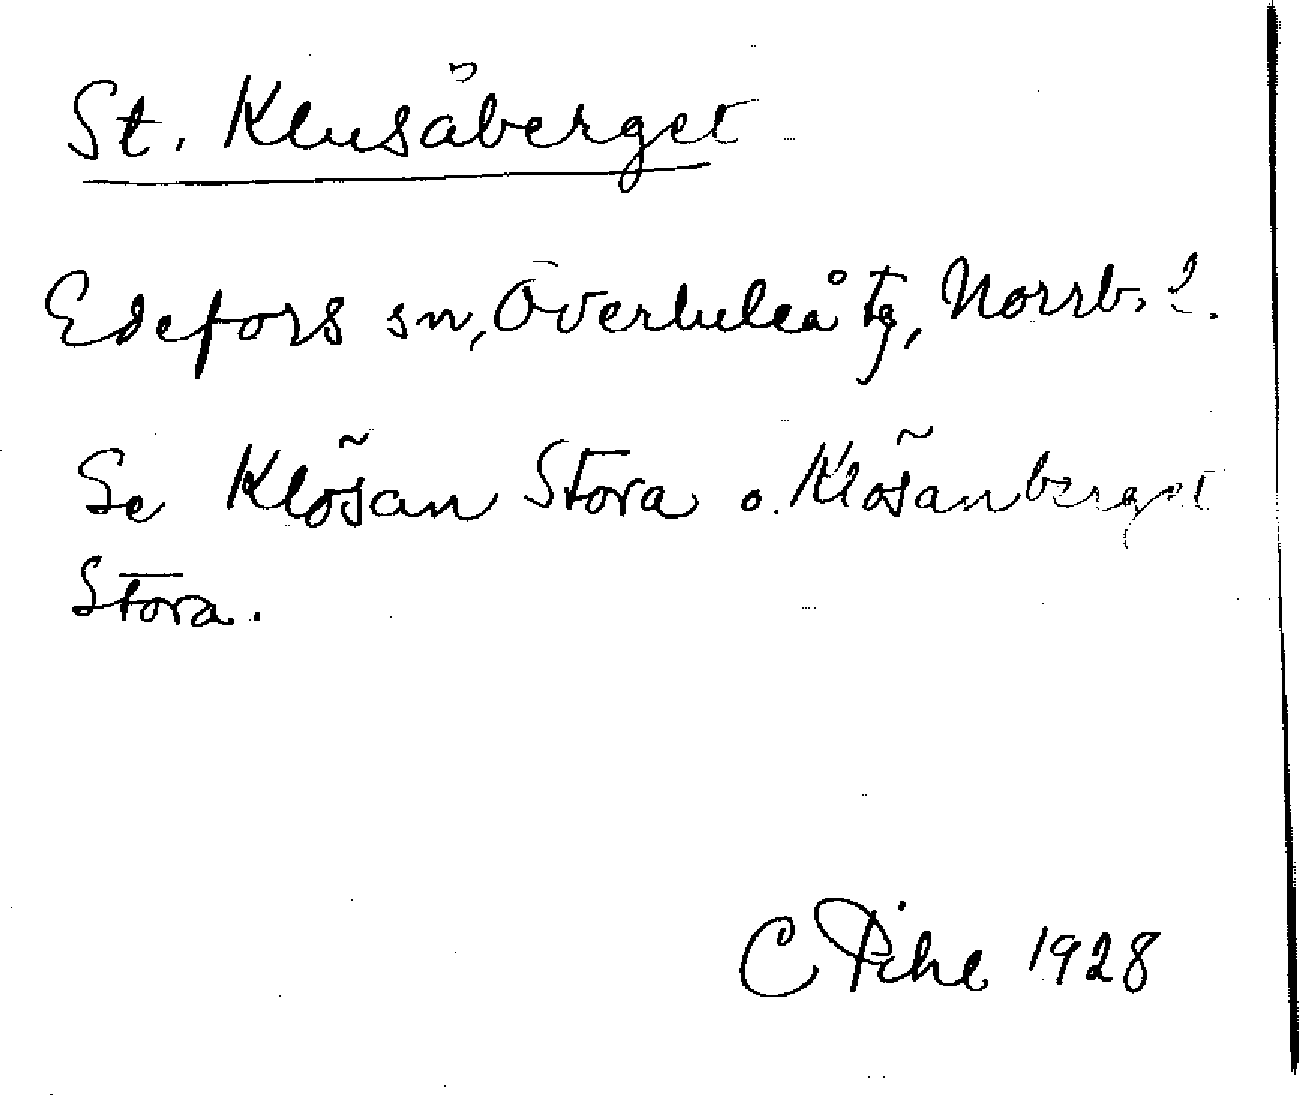 St. Klusåberget
Edefors sn, Överluleå tg, Norrb. l.
Se Klösan Stora o. Klösanberget
Stora.
C Pihl 1928